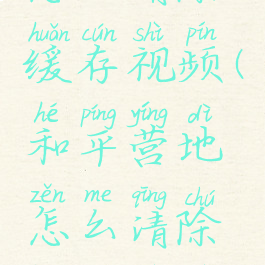 huǎn cún shì pín
缓存视频(
hé píng yíng dì
和平营地
zěn me qīng chú
怎么清除